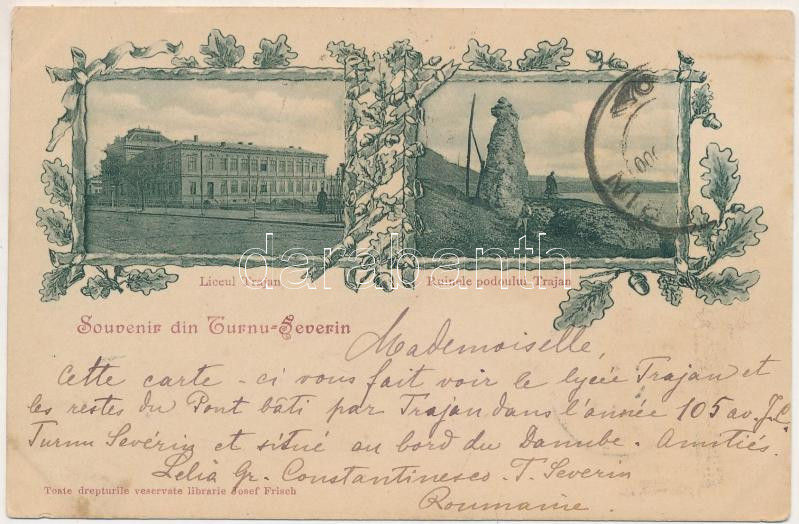 Liceul Trajan
Ruinele podoului Trajan
darabanth
Souvenir din Turnu-Severin
Mademoiselle,
Cette carte-ci vous fait voir le lycée Trajan et
les restes du Pont bâti par Trajan dans l'année 105 av. J.C.
Turnu Sévérin et situé au bord du Danube. Amitiés.
Lelia Gr. Constantinesco - T. Severin
Roumanie.
Toate drepturile veservate librarie Josef Frisch